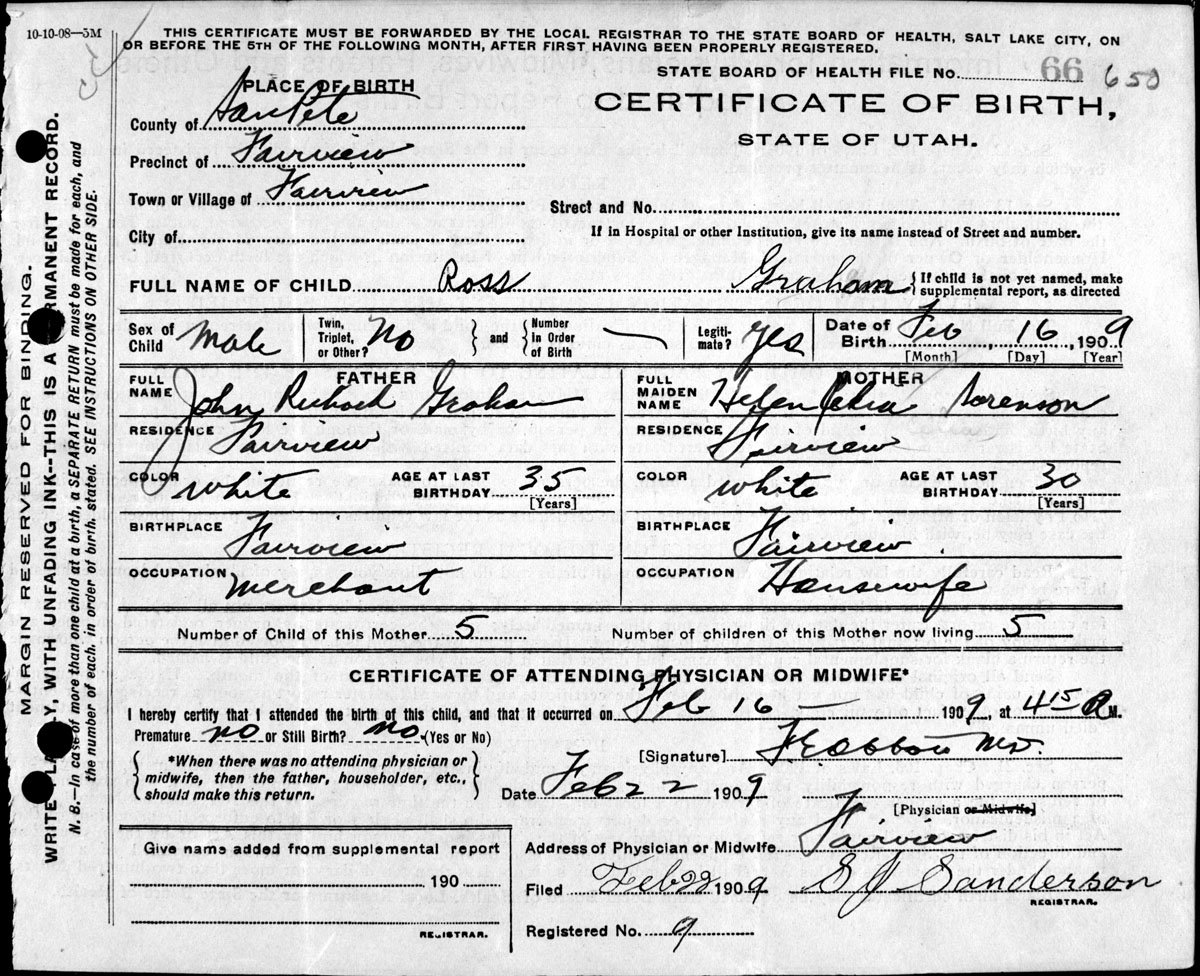 10-10-08—5M
THIS CERTIFICATE MUST BE FORWARDED BY THE LOCAL REGISTRAR TO THE STATE BOARD OF HEALTH, SALT LAKE CITY, ON
OR BEFORE THE 5TH OF THE FOLLOWING MONTH, AFTER FIRST HAVING BEEN PROPERLY REGISTERED.
STATE BOARD OF HEALTH FILE No. 66 650
CERTIFICATE OF BIRTH,
STATE OF UTAH.
PLACE OF BIRTH
County of SanPete
Precinct of Fairview
Town or Village of Fairview
City of
Street and No.
If in Hospital or other Institution, give its name instead of Street and number.
FULL NAME OF CHILD Ross Graham { If child is not yet named, make
supplemental report, as directed
Sex of Child Male
Twin, Triplet, or Other? No } and { Number In Order of Birth —
Legiti-mate? Yes
Date of Birth Feb, 16, 1909
[Month] [Day] [Year]
FATHER
FULL NAME John Richard Graham
RESIDENCE Fairview
COLOR White AGE AT LAST BIRTHDAY 35 [Years]
BIRTHPLACE Fairview
OCCUPATION Merchant
MOTHER
FULL MAIDEN NAME Helen Sorenson
RESIDENCE Fairview
COLOR White AGE AT LAST BIRTHDAY 30 [Years]
BIRTHPLACE Fairview
OCCUPATION Housewife
Number of Child of this Mother 5 Number of children of this Mother now living 5
CERTIFICATE OF ATTENDING PHYSICIAN OR MIDWIFE*
I hereby certify that I attended the birth of this child, and that it occurred on Feb 16 — 1909, at 4 15 A M.
Premature no or Still Birth? no (Yes or No)
{ *When there was no attending physician or
midwife, then the father, householder, etc.,
should make this return. }
[Signature] MD.
Date Feb 22 1909
[Physician or Midwife]
Address of Physician or Midwife Fairview
Filed Feb 22 1909 S J Sanderson
REGISTRAR.
Registered No. 9
Give name added from supplemental report
190
REGISTRAR.
MARGIN RESERVED FOR BINDING.
WRITE PLA LY, WITH UNFADING INK--THIS IS A RMANENT RECORD.
N. B.—In case of more than one child at a birth, a SEPARATE RETURN must be made for each, and
the number of each, in order of birth, stated. SEE INSTRUCTIONS ON OTHER SIDE.